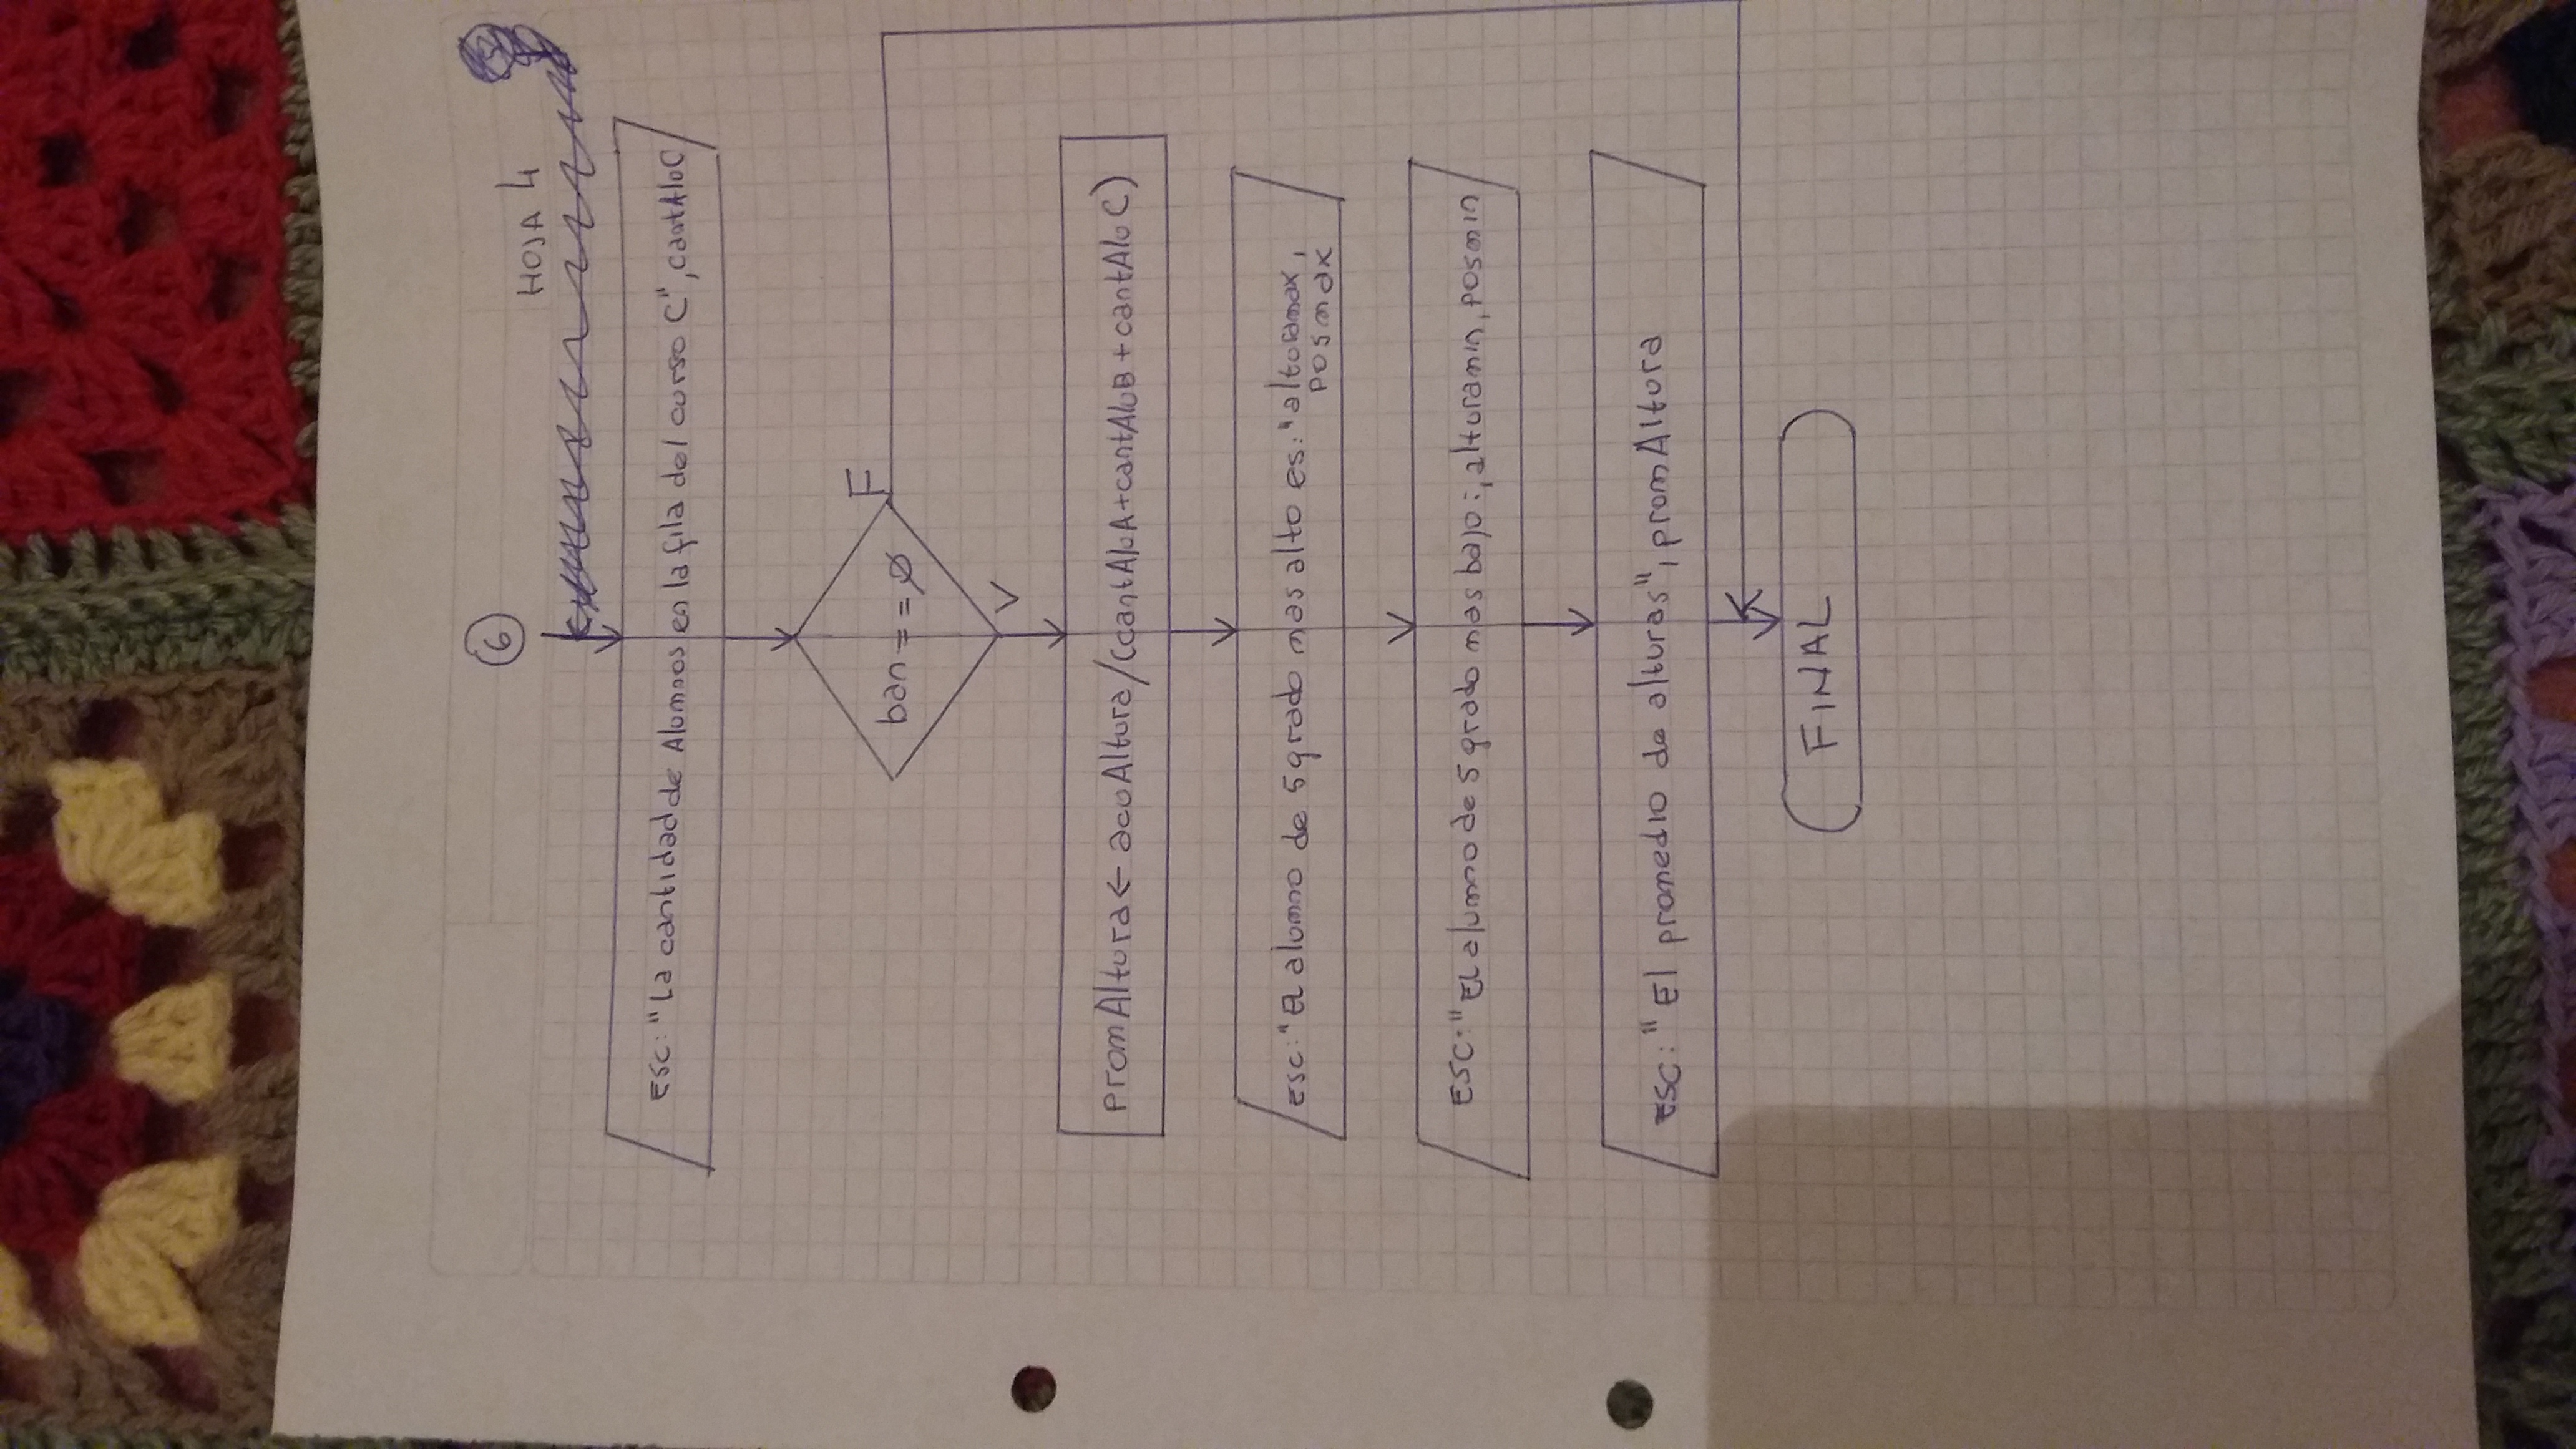 6
HOJA 4
ESC: "La cantidad de Alumnos en la fila del curso C", cantAluC
ban == Ø
F
V
promAltura ← acuAltura/(cantAluA+cantAluB+cantAluC)
esc: "El alumno de 5 grado mas alto es: "alturamax,
posmax
ESC: "El alumno de 5 grado mas bajo:, alturamin, posmin
ESC: "El promedio de alturas", promAltura
FINAL